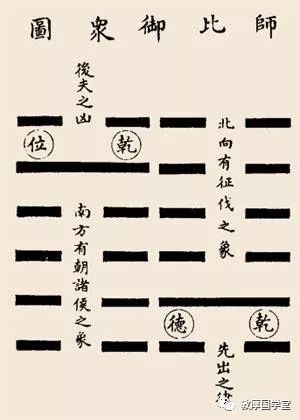 師比御衆圖
北向有征伐之象
先出之律
乾德
後夫之凶
乾位
南方有朝諸侯之象
敦厚国学堂